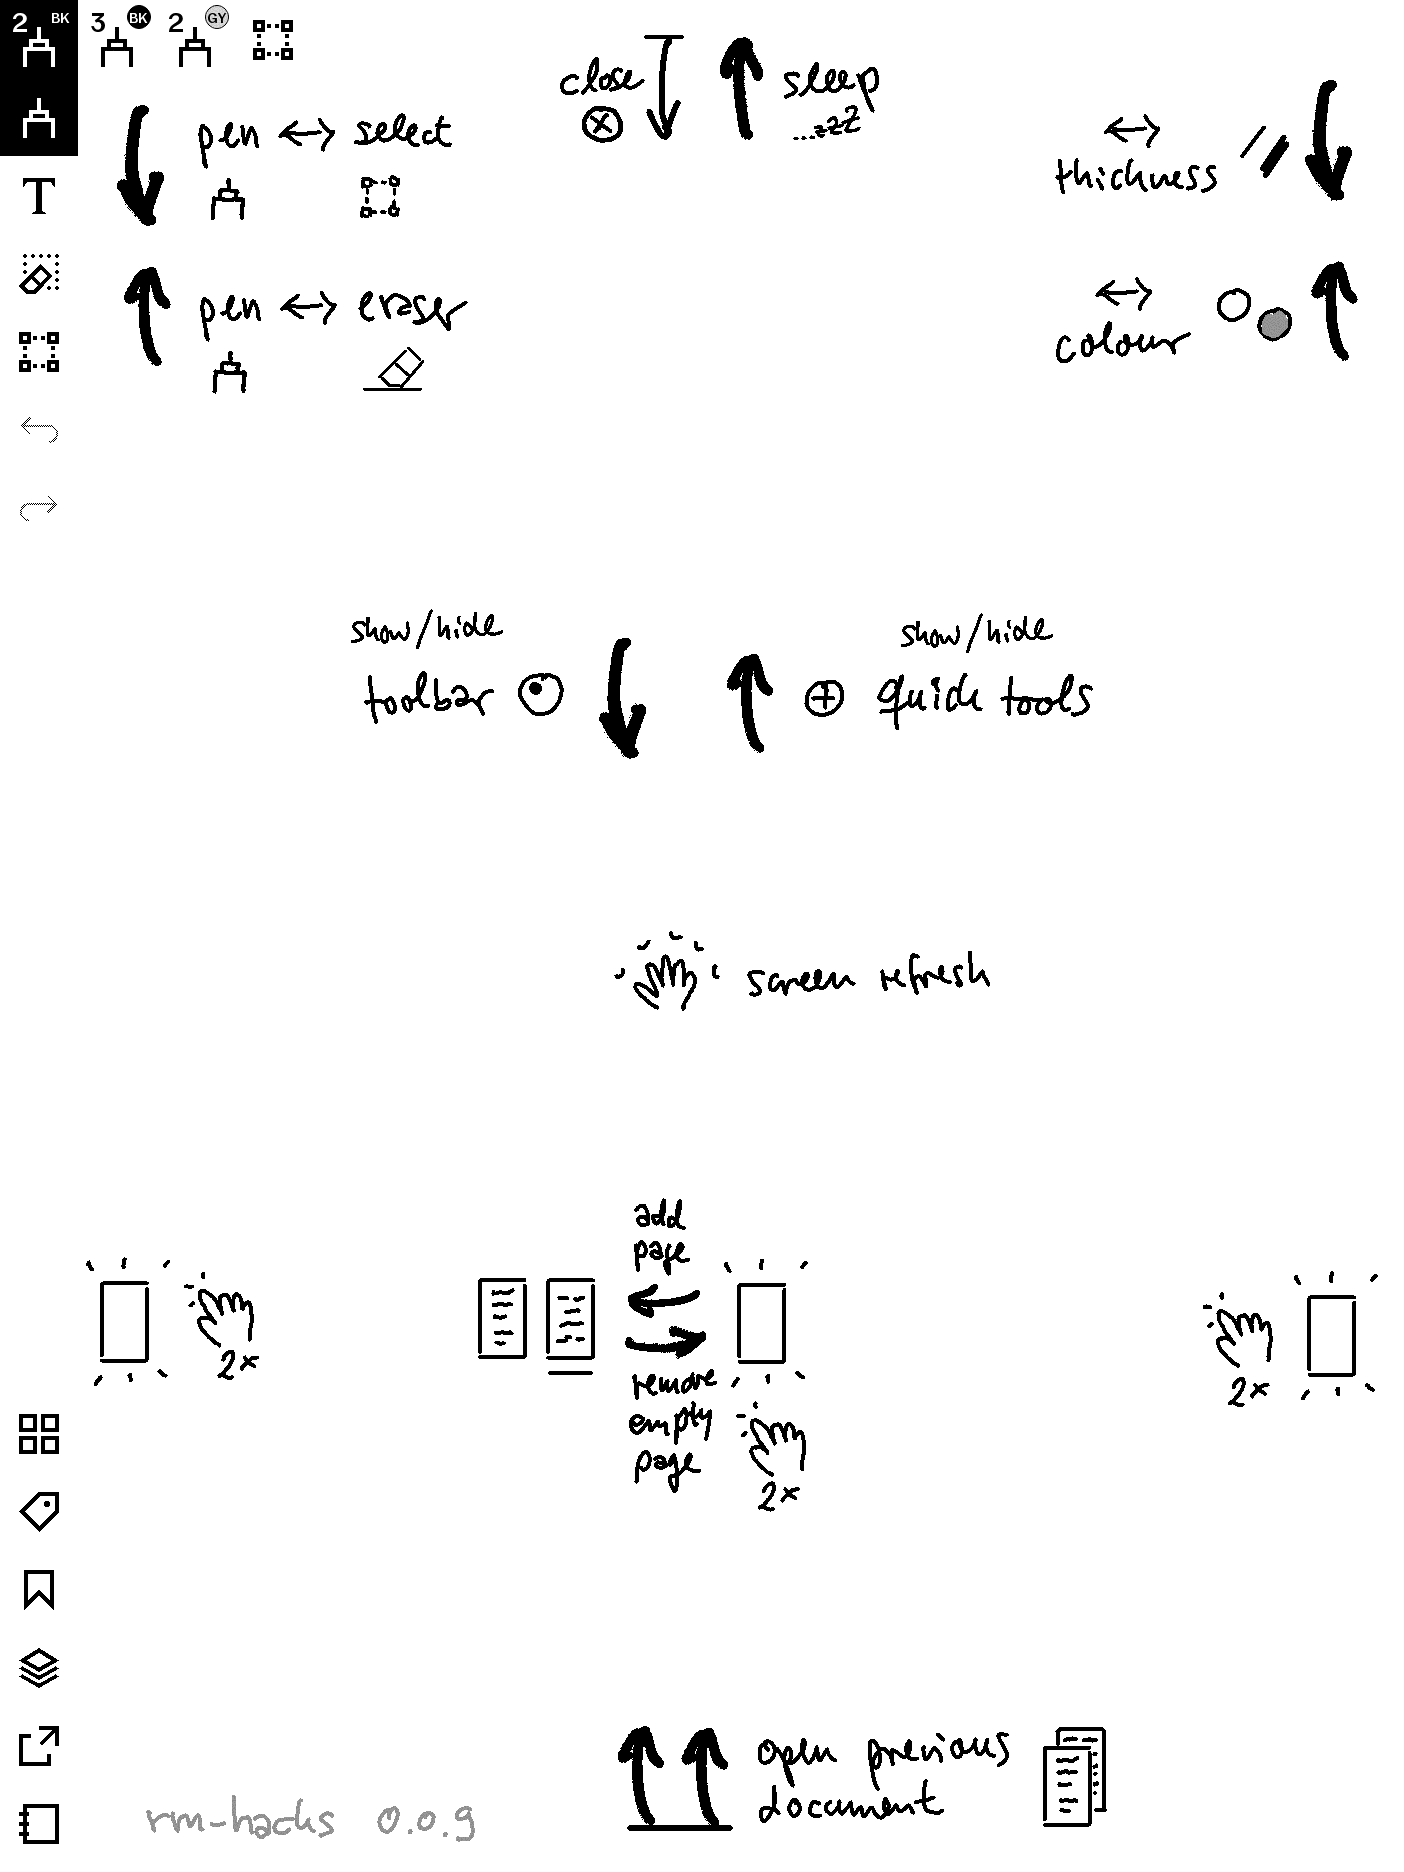 2 BK 3 BK 2 GY
close
sleep
...zzZ
pen ↔ select
↔
thickness
T
pen ↔ eraser
↔
colour
show/hide
toolbar
show/hide
quick tools
screen refresh
add
page
2x
remove
empty
page
2x
2x
open previous
document
rm-hacks 0.0.9